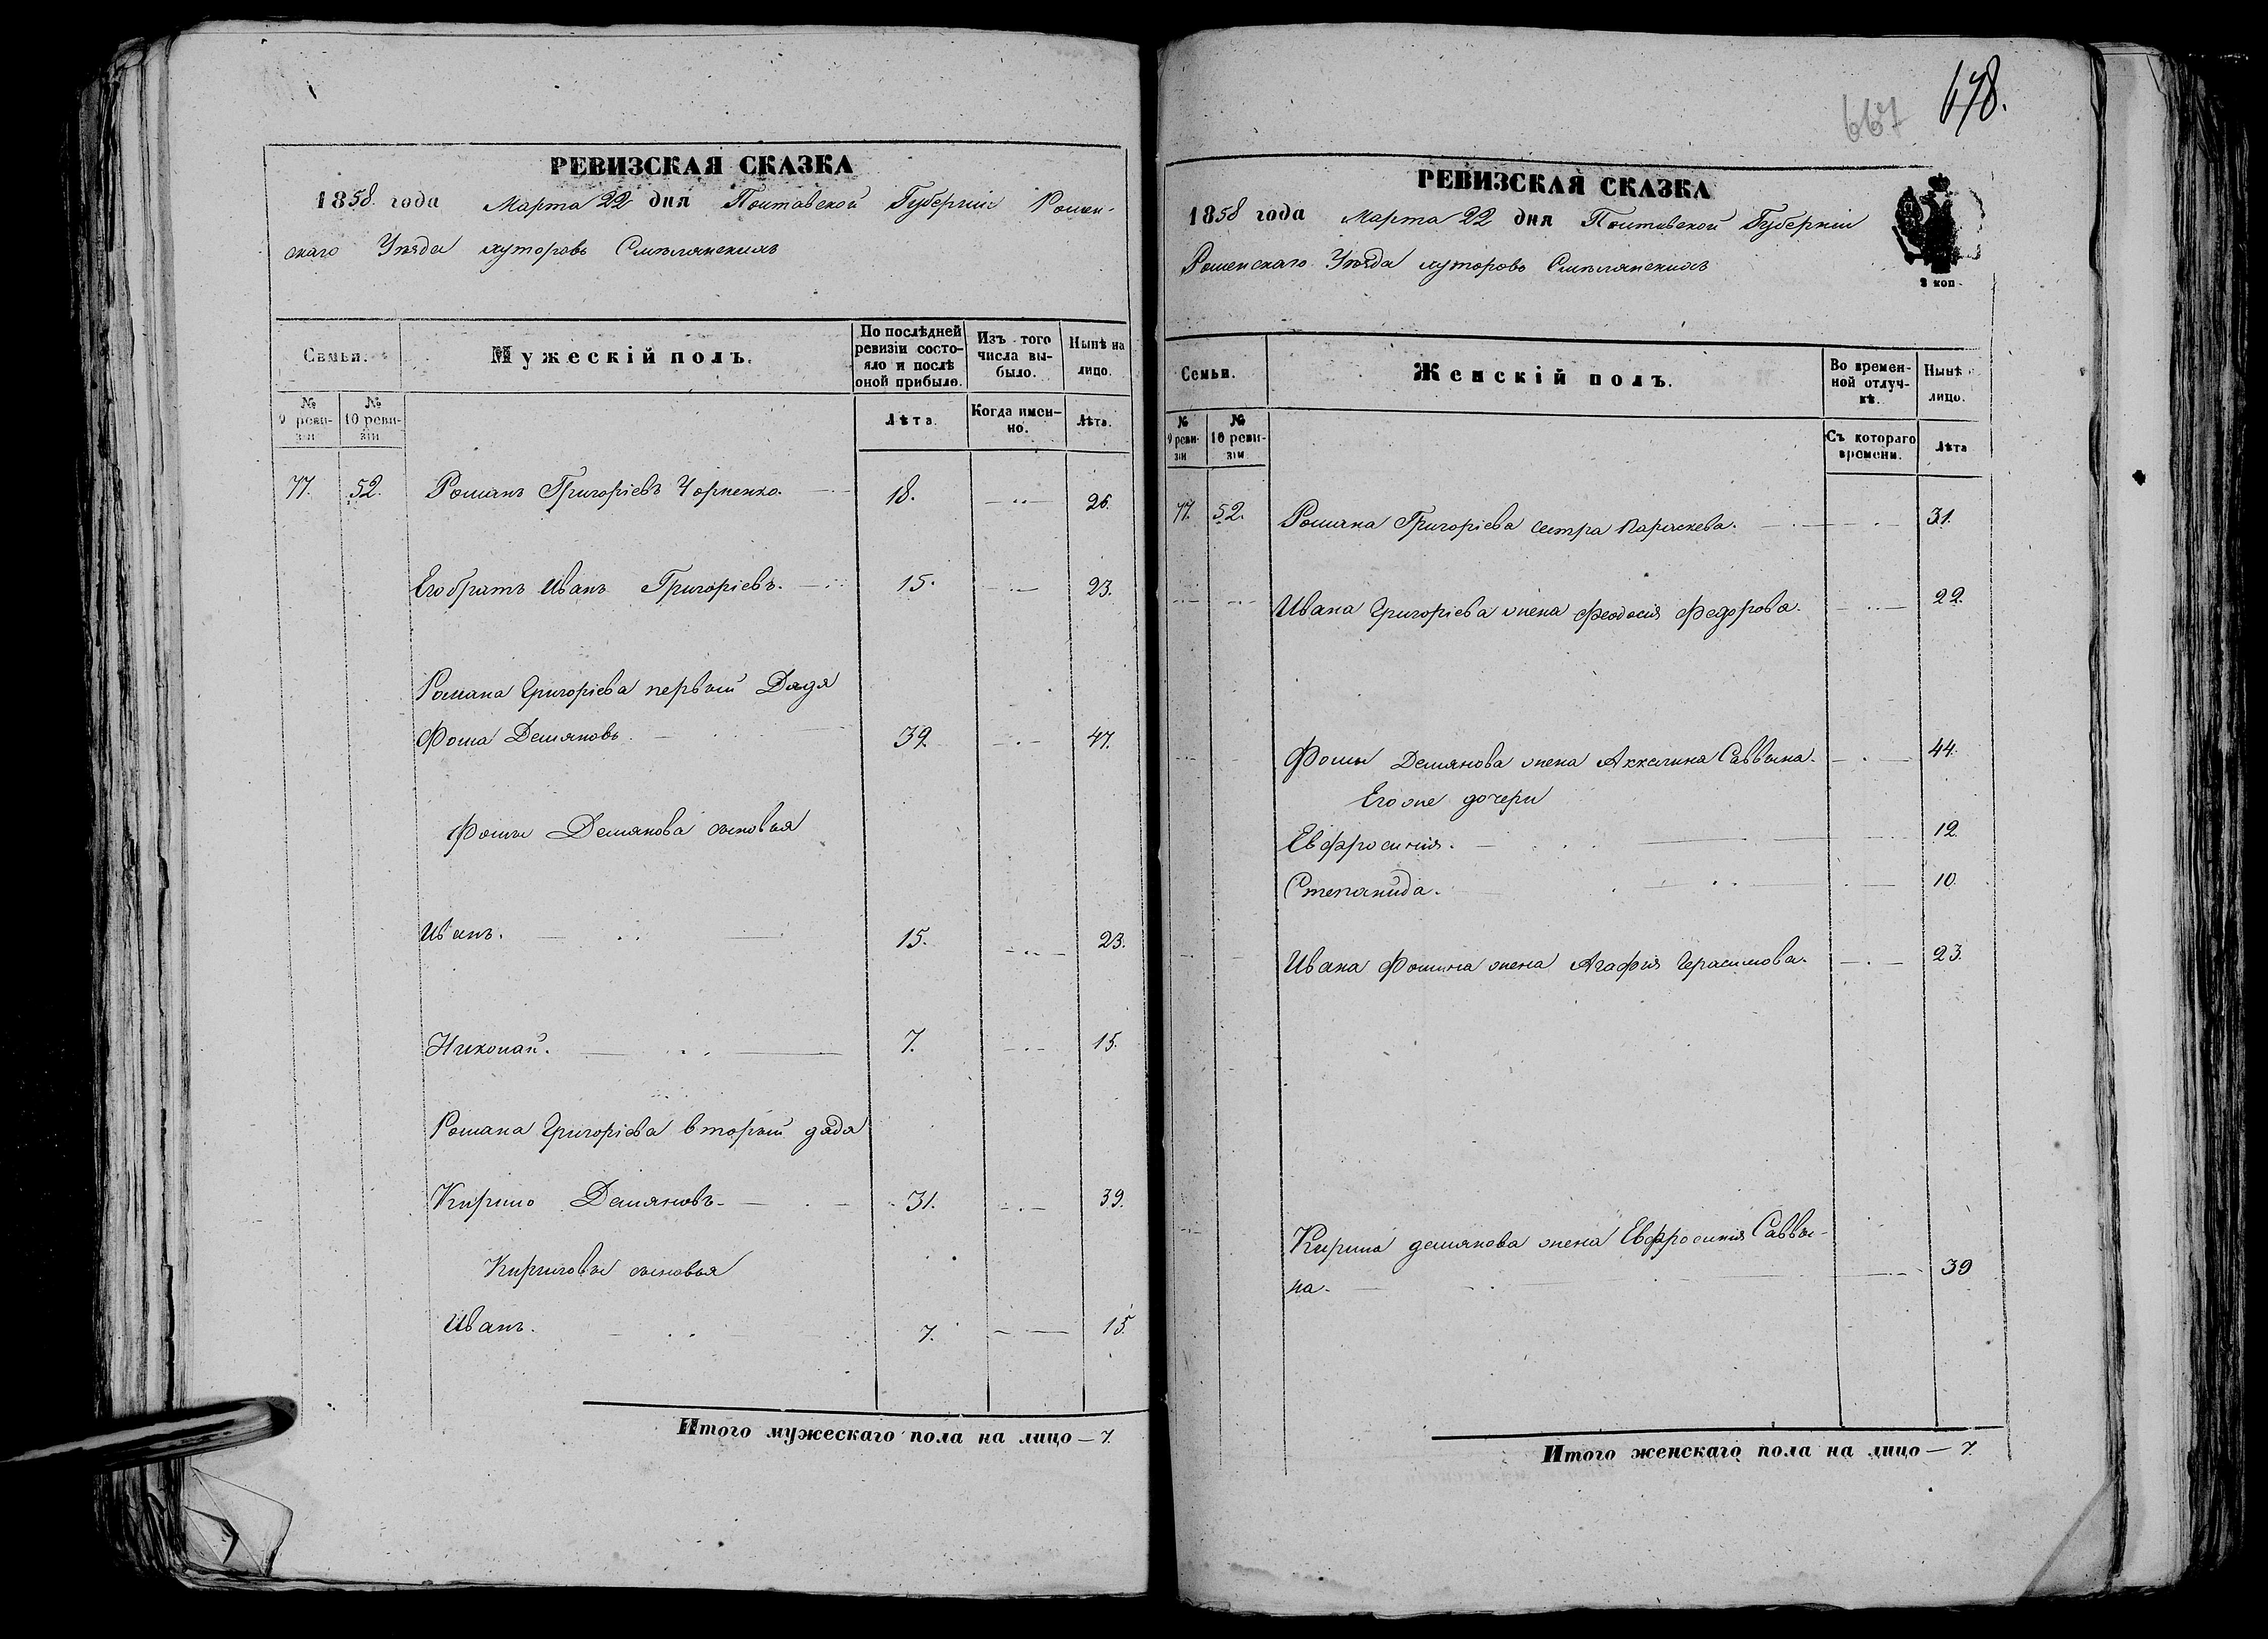 РЕВИЗСКАЯ СКАЗКА
1858. года Марта 22 дня Полтавской Губерніи Ромен-
скаго Уѣзда хуторовъ Смѣлянскихъ
Семьи.
Мужескій полъ.
По послѣдней ревизіи состо-
яло и послѣ оной прибыло.
Изъ того числа вы-
было.
Нынѣ на лицо.
№ 9 реви-
зіи
№ 10 реви-
зіи
Лѣта.
Когда имен-
но.
Лѣта.
77. 52. Романъ Григоріевъ Чорненко. 18. 26.
Его братъ Иванъ Григоріевъ. 15. 23.
Романа Григоріева первый Дядя
Фома Демяновъ. 39. 47.
Фомы Демянова сыновья
Иванъ. 15. 23.
Николай. 7. 15.
Романа Григоріева вторый дядя
Кирило Демяновъ 31. 39.
Кириловы сыновья
Иванъ. 7. 15.
Итого мужескаго пола на лицо — 7.
667 678.
РЕВИЗСКАЯ СКАЗКА
1858 года Марта 22 дня Полтавской Губерніи
Роменскаго Уѣзда хуторовъ Смѣлянскихъ
2 коп.
Семьи.
Женскій полъ.
Во времен-
ной отлуч-
кѣ.
Нынѣ
лицо.
№ 9 реви-
зіи
№ 10 реви-
зіи
Съ котораго времени.
Лѣта
77. 52. Романа Григоріева сестра Параскева. 31.
Ивана Григоріева жена Феодосія Федорова. 22.
Фомы Демянова жена Аккилина Саввына. 44.
Его же дочери
Евфросинія. 12.
Степанида. 10.
Ивана Фомина жена Агафія Герасимова. 23.
Кирила демянова жена Евфросинія Саввы-
на. 39
Итого женскаго пола на лицо — 7.